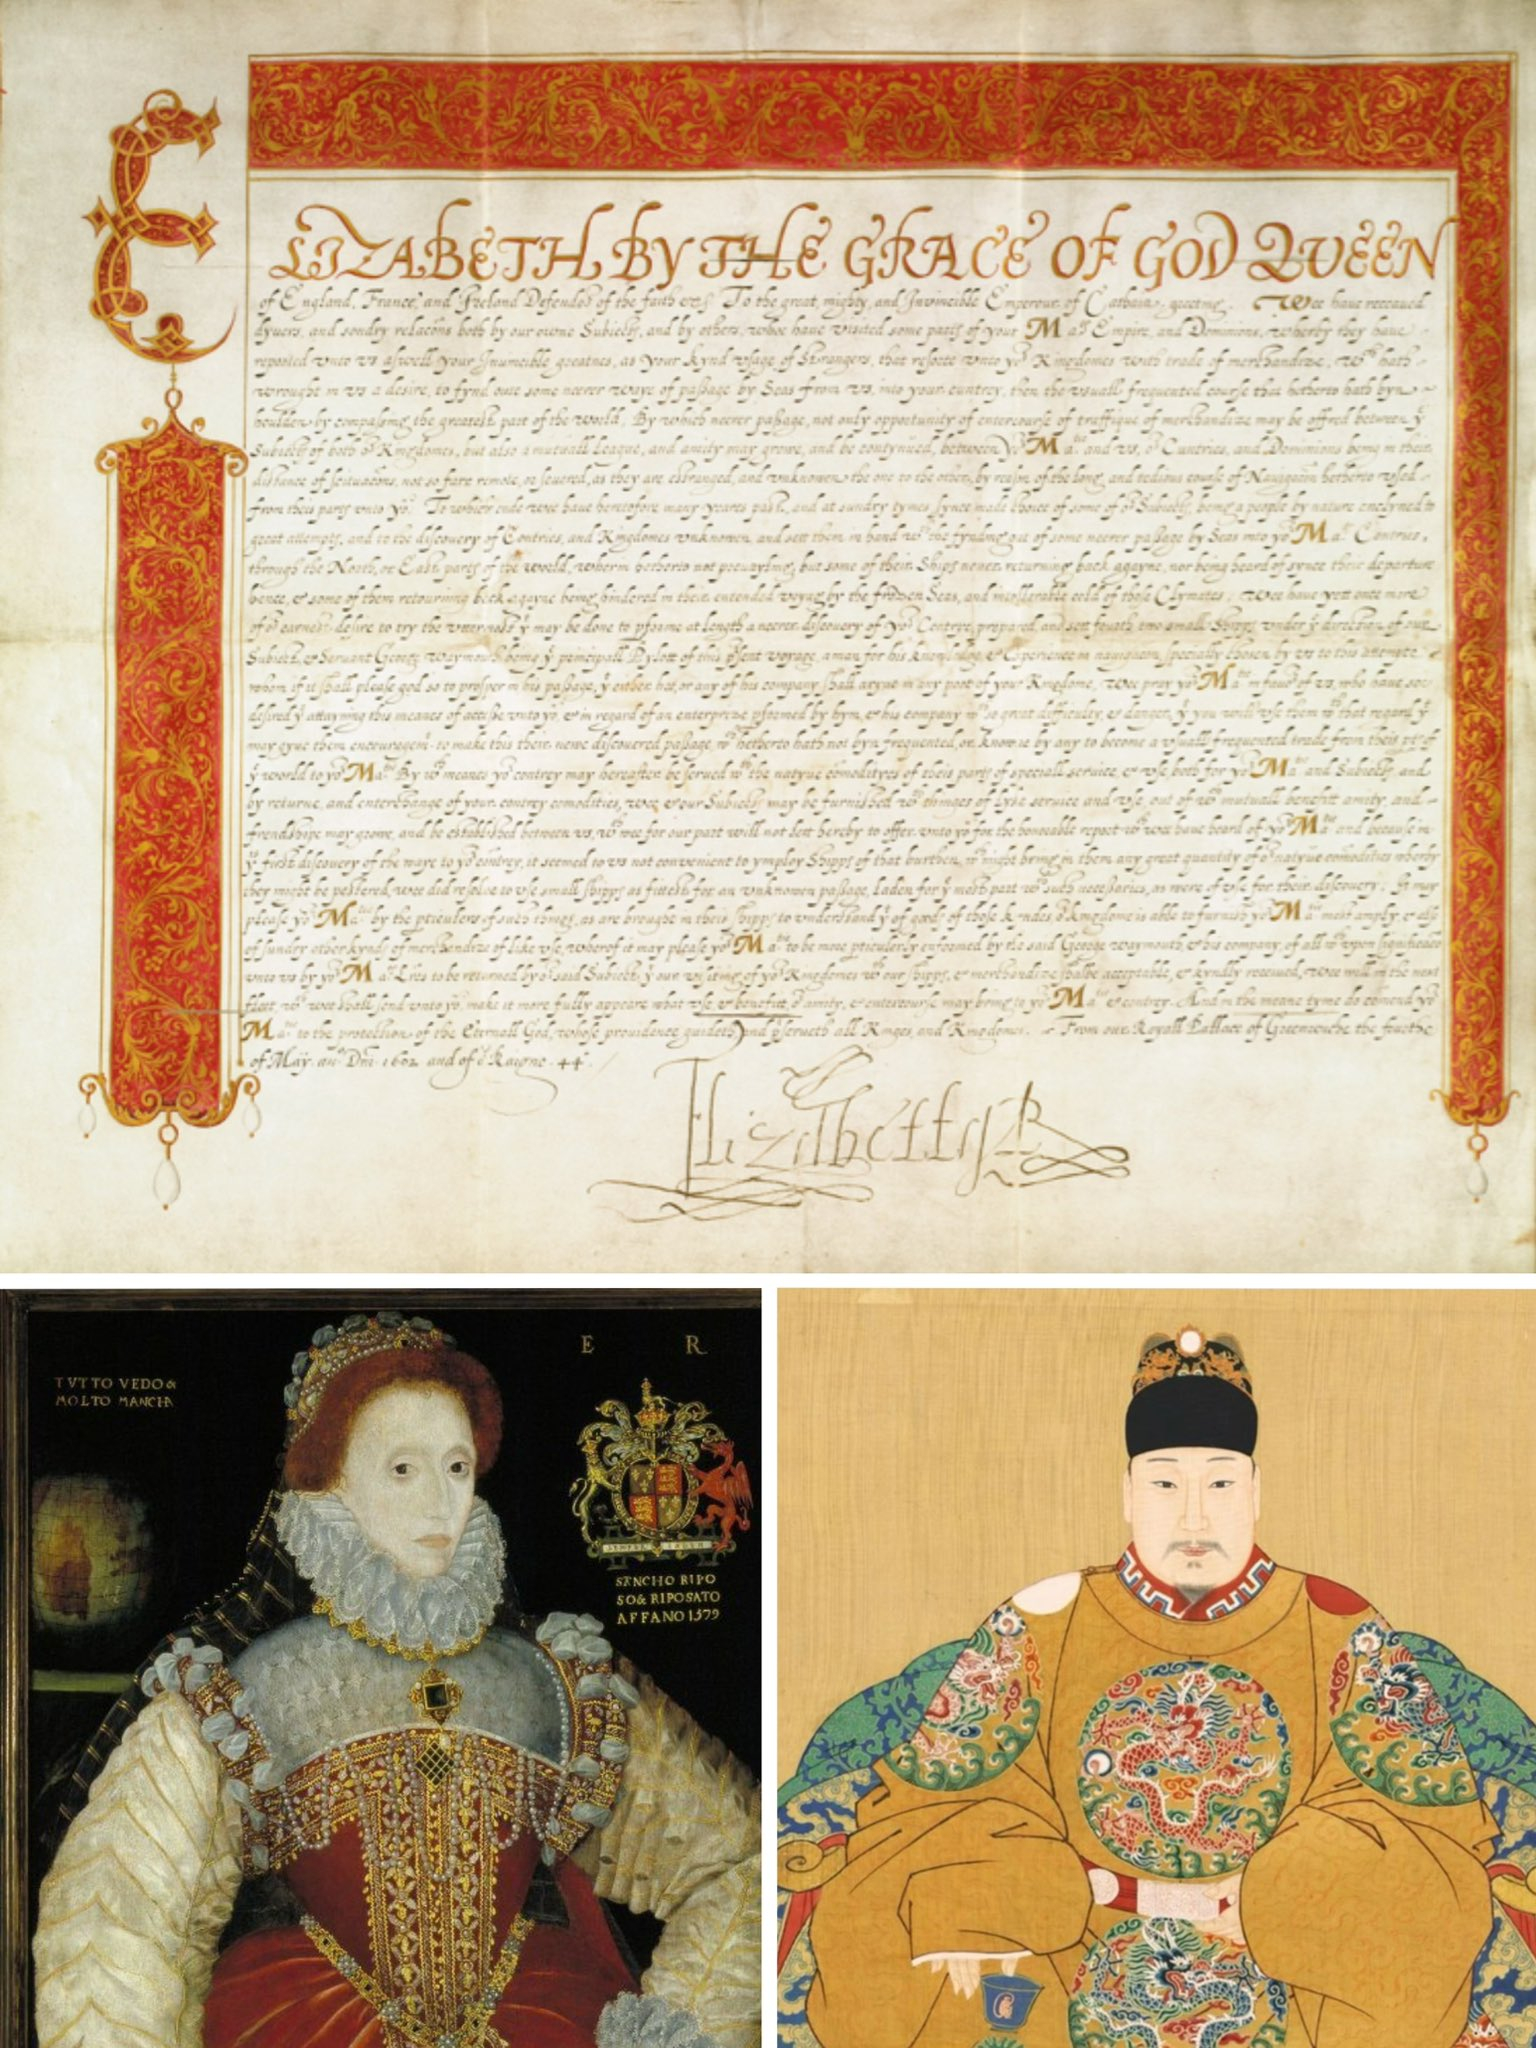 ELIZABETH BY THE GRACE OF GOD QVEEN
of England, France, and Ireland Defendor of the faith &c. To the great, mighty, and Invincible Emperour of Cathaia, greeting. Wee have receaued
dyuers, and sondry relacõns both by our owne Subiects, and by others, whoe have visited some parts of your Ma^ts Empire, and Dominions, wherby they have
reported vnto vs aswell your Inuincible greatnes, as your kynd vsage of Strangers, that resorte vnto yo^r Kingdomes with trade of merchandize, w^ch hath
wrought in vs a desire, to fynd oute some neerer waye of passage by Seas from vs, into your cuntrey, then the vsuall frequented course that hetherto hath byn
houlden by compassing the greatest part of the world; By which neerer passage, not only opportunity of entercourse of traffique of merchandize may be offred between y^e
Subiects of both o^r Kingdomes, but also a mutuall League, and amity may growe, and be contynued, between yo^r Ma^tie and vs, o^r Cuntries, and Dominions being in their
distance of scituacõns, not so farre remote, or severed, as they are estranged, and vnknowen the one to the other, by reason of the long, and tedious course of Navigacõn hetherto vsed
from theis parts vnto yo^u. To which ende wee have heretofore many yeares past, and at sundry tymes synce made choice of some of o^r Subiects, being a people by nature enclyned to
great attempts, and to the discovery of Contries, and Kingdomes vnknowen, and sett them in hand w^th the fynding out of some neerer passage by Seas into yo^r Ma^ts Contries,
through the North, or East parts of the world, wherin hetherto not preuayling, but some of their Ships neuer returning back agayne, nor being heard of synce their departure
hence, & some of them retourning back agayne being hindered in their entended voyag by the frozen Seas, and intollerable cold of those Clymates: wee have yett once more
of o^r earnest desire to try the vttermost y^t may be done to pforme at length a neerer discovery of yo^r Contrye, prepared, and sett fourth two small Shipps vnder y^e direction of our
Subiect, & Servant George Waymouth being y^e principall Pylott of this p̃sent voyage, a man for his knowledge, & Experience in nauigacõn specially chosen by vs to this attempte
whom if it shall please god so to prosper in his passage, y^t either hee, or any of his company shall aryue in any port of your Kingdome, Wee pray yo^r Ma^tie in fauo^r of vs, who have soe
desired y^e attayning this meanes of accesse vnto yo^u, & in regard of an enterprize pformed by hym, & his company w^th so great difficulty, & danger, y^t you will vse them w^th that regard y^t
may gyue them encouragem^t to make this their newe discovered passage, w^ch hetherto hath not byn frequented, or knowne by any to become a vsually frequented trade from theis pts of
y^e world to yo^r Ma^tie. By w^ch meanes yo^r contrey may hereafter be serued w^th the natyue cõmodityes of theis parts of speciall service, & vse both for yo^r Ma^tie and Subiects, and
by returne, and enterchange of your contrey comodities, wee & our Subiects may be furnished w^th thinges of lyke service and vse, out of w^ch mutuall benefitt amity, and
frendshipe may growe, and be established between vs, w^ch wee for our part will not lett hereby to offer vnto yo^u for the honorable report w^ch wee have heard of yo^r Ma^tie and because in
y^s first discovery of the waye to yo^r contrey, it seemed to vs not convenient to ymploy Shipps of that burthen w^ch might bring in them any great quantity of o^r natyue cõmodities wherby
they might be pestered, wee did resolue to vse small shipps as fittest for an vnknowen passage, laden for y^e most part w^th such necessaries, as were of vse for their discovery; It may
please yo^r Ma^tie by the pticulers of such things, as are brought in theis shipps to vnderstand y^t of goods of those kindes o^r kingdome is able to furnish yo^r Ma^tie most amply & also
of sundry other kynds of merchandize of like vse, wherof it may please yo^r Ma^tie to be more pticulerly enformed by the said George Waymouth, & his company, of all w^ch vpon significacõn
vnto vs by yo^r Ma^ts Lrẽs to be returned by o^r said Subiect, y^t our visiting of yo^r Kingdomes w^th our shipps, & merchandize shalbe acceptable, & kyndly receiued, wee will in the next
fleet, w^ch wee shall send vnto yo^u, make it more fully appeare what vse, & benefitt, o^r amity, & entercourse may bring to yo^r Ma^tie & contrey. And in the meane tyme do cõmend yo^r
Ma^tie to the protection of the Eternall God, whose providence guideth, and p̃serueth all Kinges, and Kingdomes. From our Royall Pallace of Greenewiche the fourthe
of May an^o Dñi 1602 and of o^r Raigne 44.
Elizabeth R
TVTTO VEDO &
MOLTO MANCHA
E R
SEMPER EADEM
STANCHO RIPO
SO & RIPOSATO
AFFANO 1579